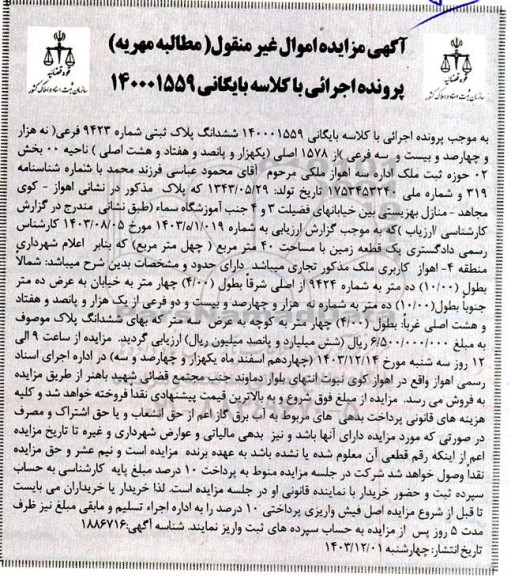 آگهی مزایده اموال غیر منقول( مطالبه مهریه)
پرونده اجرائی با کلاسه بایگانی ۱۴۰۰۰۱۵۵۹
قوه قضائیه
سازمان ثبت اسناد و املاک کشور
قوه قضائیه
سازمان ثبت اسناد و املاک کشور
به موجب پرونده اجرائی با کلاسه بایگانی ۱۴۰۰۰۱۵۵۹ ششدانگ پلاک ثبتی شماره ۹۴۲۳ فرعی( نه هزار
و چهارصد و بیست و سه فرعی )از ۱۵۷۸ اصلی (یکهزار و پانصد و هفتاد و هشت اصلی ) ناحیه ۰۰ بخش
۰۲ حوزه ثبت ملک اداره سه اهواز ملکی مرحوم آقای محمود عباسی فرزند محمد با شماره شناسنامه
۳۱۹ و شماره ملی ۱۷۵۳۴۵۳۲۴۰ تاریخ تولد: ۱۳۴۳/۰۵/۲۹ که پلاک مذکور در نشانی اهواز - کوی
مجاهد - منازل بهزیستی بین خیابانهای فضیلت ۳ و ۴ جنب آموزشگاه سماء (طبق نشانی مندرج در گزارش
کارشناسی ارزیاب )که به موجب گزارش ارزیابی به شماره ۱۴۰۳/۵/۱/۰۱۹ مورخ ۱۴۰۳/۰۸/۰۵ کارشناس
رسمی دادگستری یک قطعه زمین با مساحت ۴۰ متر مربع ( چهل متر مربع) که بنابر اعلام شهرداری
منطقه ۴- اهواز کاربری ملک مذکور تجاری میباشد دارای حدود و مشخصات بدین شرح میباشد: شمالا
بطول (۱۰/۰۰) ده متر به شماره ۹۴۲۴ از اصلی شرقاً بطول (۴/۰۰) چهار متر به خیابان به عرض ده متر
جنوباً بطول(۱۰/۰۰) ده متر به شماره نه هزار و چهارصد و بیست و دو فرعی از یک هزار و پانصد و هفتاد
و هشت اصلی غربا: بطول (۴/۰۰) چهار متر به کوچه به عرض سه متر که بهای ششدانگ پلاک موصوف
به مبلغ ۶/۵۰۰/۰۰۰/۰۰۰ ریال (شش میلیارد و پانصد میلیون ریال) ارزیابی گردید. مزایده از ساعت ۹ الی
۱۲ روز سه شنبه مورخ ۱۴۰۳/۱۲/۱۴ (چهاردهم اسفند ماه یکهزار و چهارصد و سه) در اداره اجرای اسناد
رسمی اهواز واقع در اهواز کوی نبوت انتهای بلوار دماوند جنب مجتمع قضائی شهید باهنر از طریق مزایده
به فروش می رسد. مزایده از مبلغ فوق شروع و به بالاترین قیمت پیشنهادی نقدا فروخته خواهد شد و کلیه
هزینه های قانونی پرداخت بدهی های مربوطه به آب برق گاز اعم از حق انشعاب و یا حق اشتراک و مصرف
در صورتی که مورد مزایده دارای آنها باشد و نیز بدهی مالیاتی و عوارض شهرداری و غیره تا تاریخ مزایده
اعم از اینکه رقم قطعی آن معلوم شده یا نشده باشد به عهده برنده مزایده است و نیم عشر و حق مزایده
نقداً وصول خواهد شد شرکت در جلسه مزایده منوط به پرداخت ۱۰ درصد مبلغ پایه کارشناسی به حساب
سپرده ثبت و حضور خریدار با نماینده قانونی او در جلسه مزایده است. لذا خریدار یا خریداران می بایست
تا قبل از شروع مزایده اصل فیش واریزی پرداختی ۱۰ درصد را به اداره اجراء تسلیم و مابقی مبلغ نیز ظرف
مدت ۵ روز پس از مزایده به حساب سپرده های ثبت واریز نمایند. شناسه آگهی:۱۸۸۶۷۱۶
تاریخ انتشار: چهارشنبه ۱۴۰۳/۱۲/۰۱